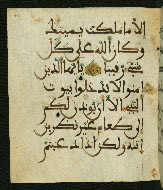 الا ما ملكت يمينك
وكان الله على كل
شىء رقيبا يايها الذين
امنوا لا تدخلوا بيوت
النبى الا ان يوذن لكم
الى طعام غير نظرين
انيه ولكن اذا دعيتم